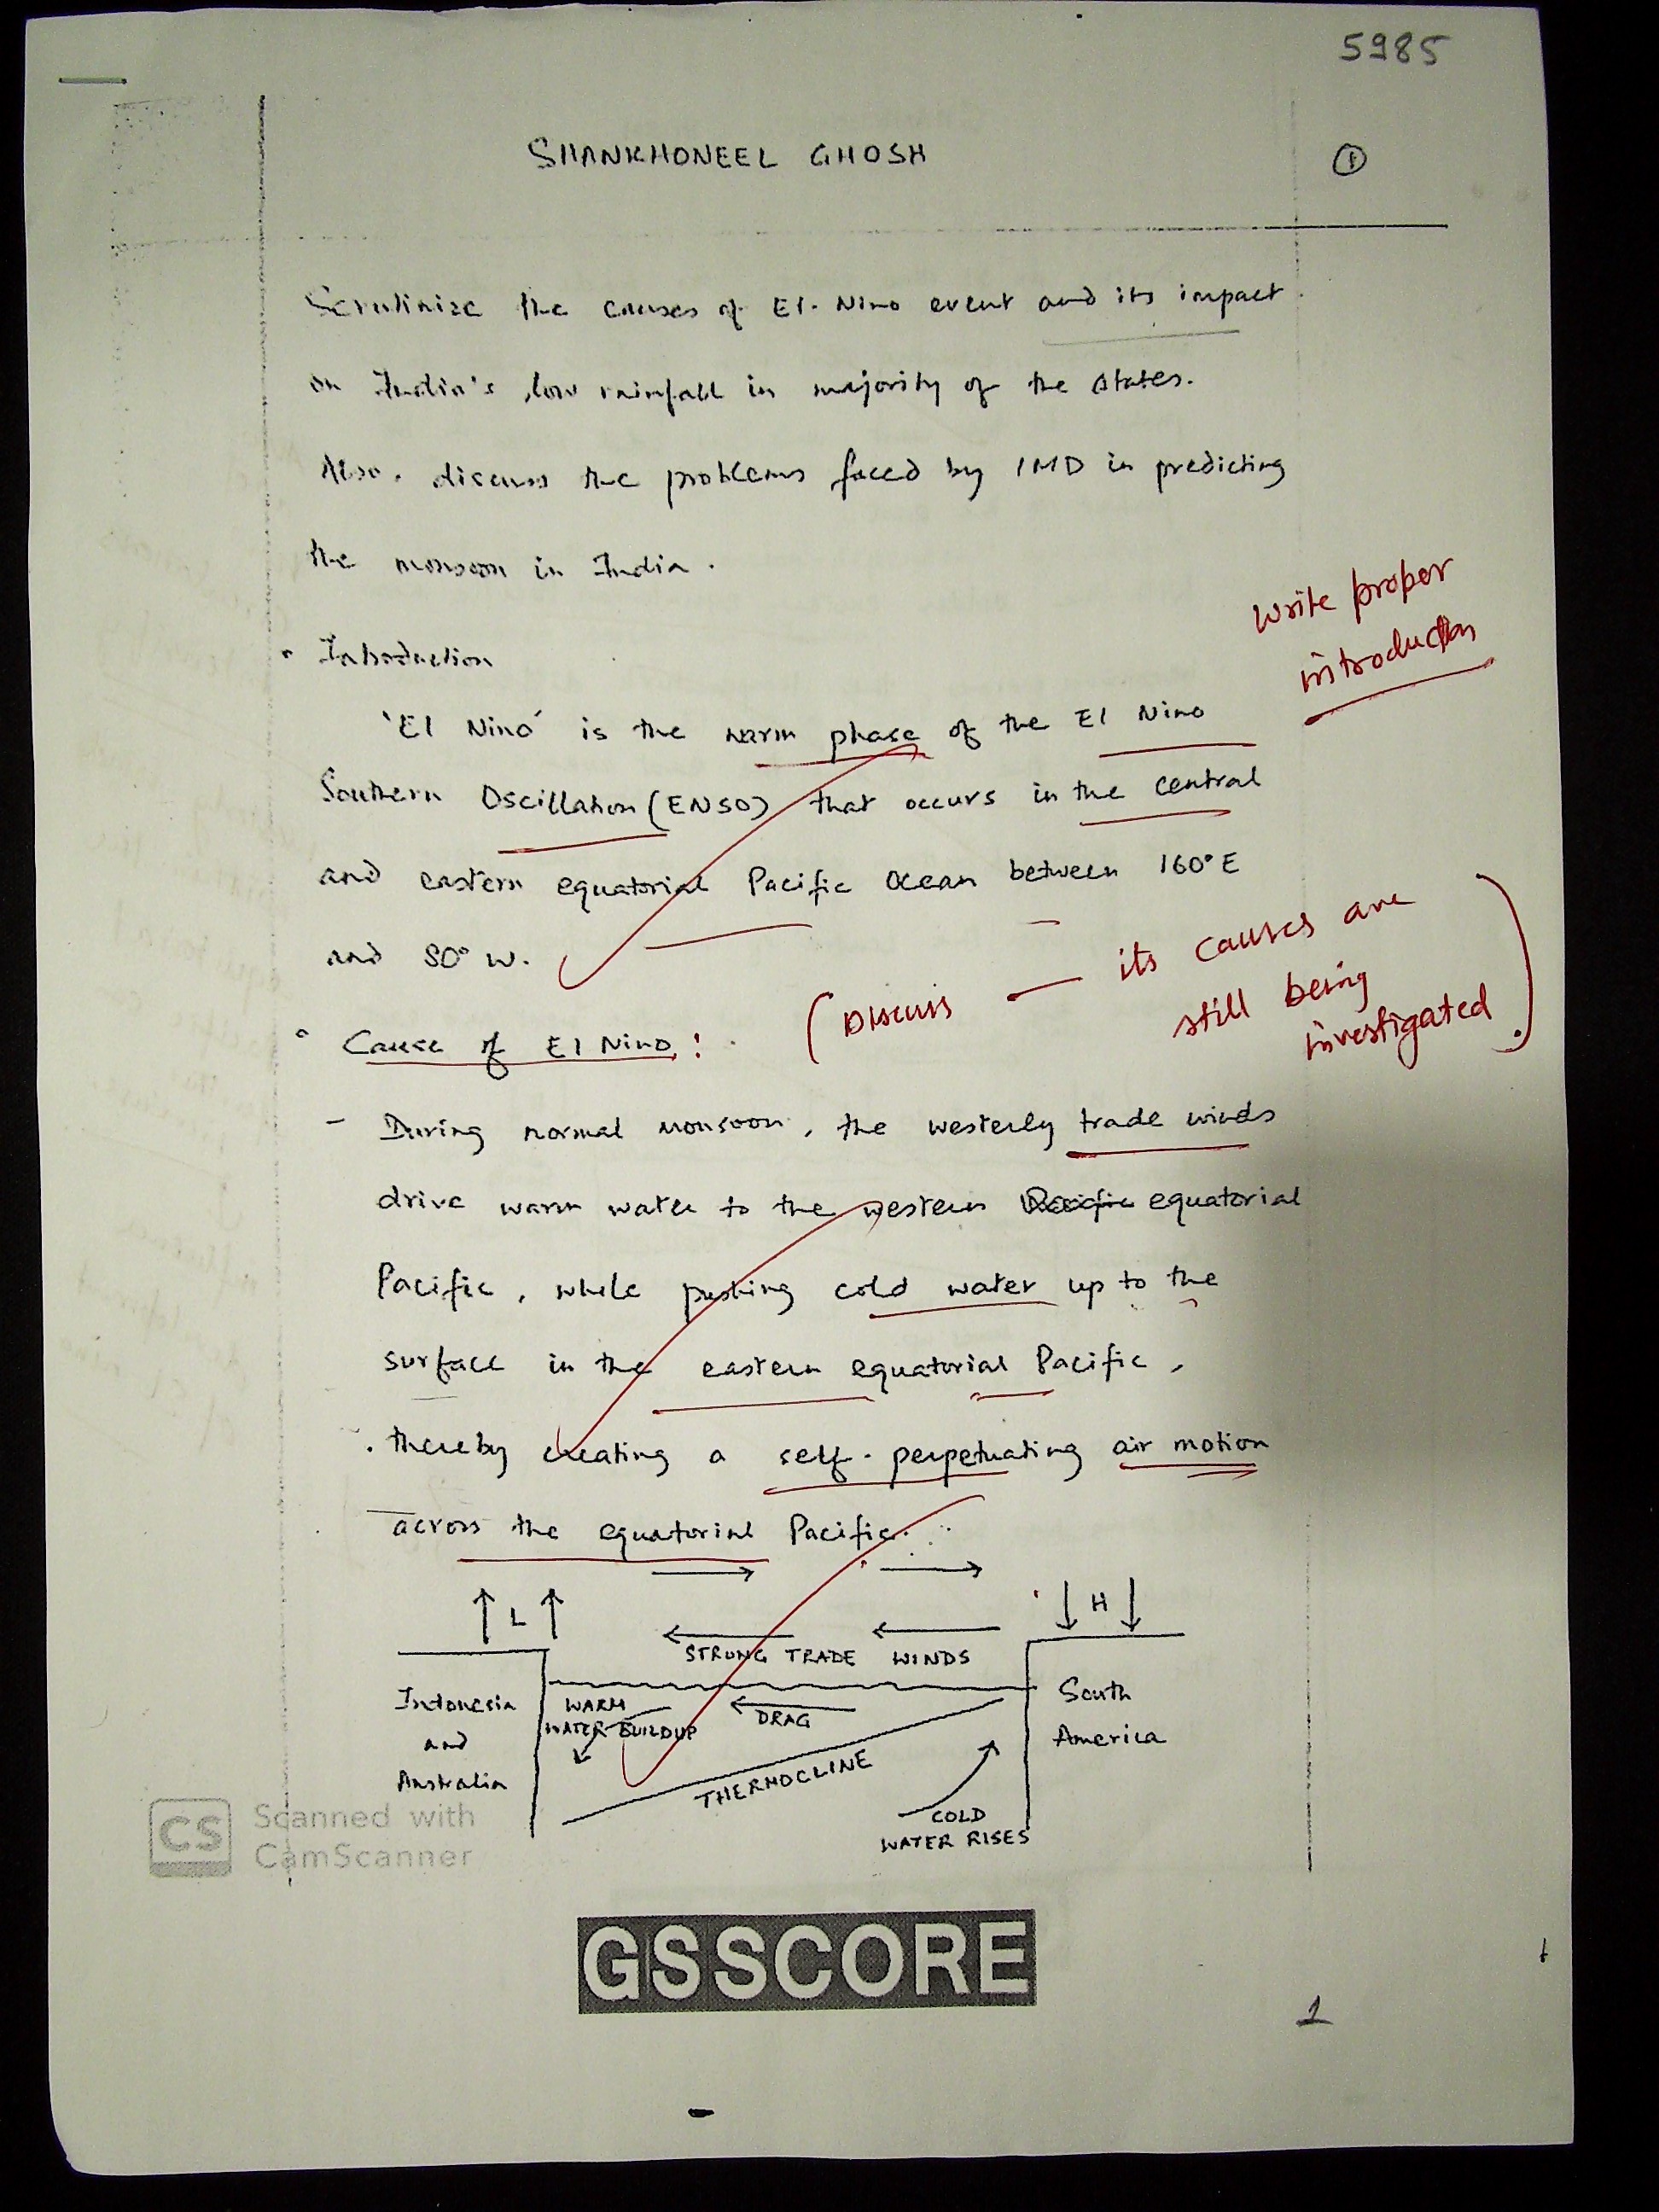 5985
SHANKHONEEL GHOSH
1
Scrutinize the causes of El-Nino event and its impact
on India's low rainfall in majority of the states.
Also, discuss the problems faced by IMD in predicting
the monsoon in India.
Write proper
introduction
• Introduction
'El Nino' is the warm phase of the El Nino
Southern Oscillation (ENSO) that occurs in the central
and eastern equatorial Pacific Ocean between 160°E
and 80° W.
(Discuss — its causes are
still being
investigated.)
• Cause of El Nino:
- During normal monsoon, the westerly trade winds
drive warm water to the western Pacific equatorial
Pacific, while pushing cold water up to the
surface in the eastern equatorial Pacific,
thereby creating a self-perpetuating air motion
across the equatorial Pacific.
L
H
STRONG TRADE WINDS
Indonesia
and
Australia
WARM
WATER BUILDUP
DRAG
THERMOCLINE
COLD
WATER RISES
South
America
CS Scanned with
CamScanner
GSSCORE
1